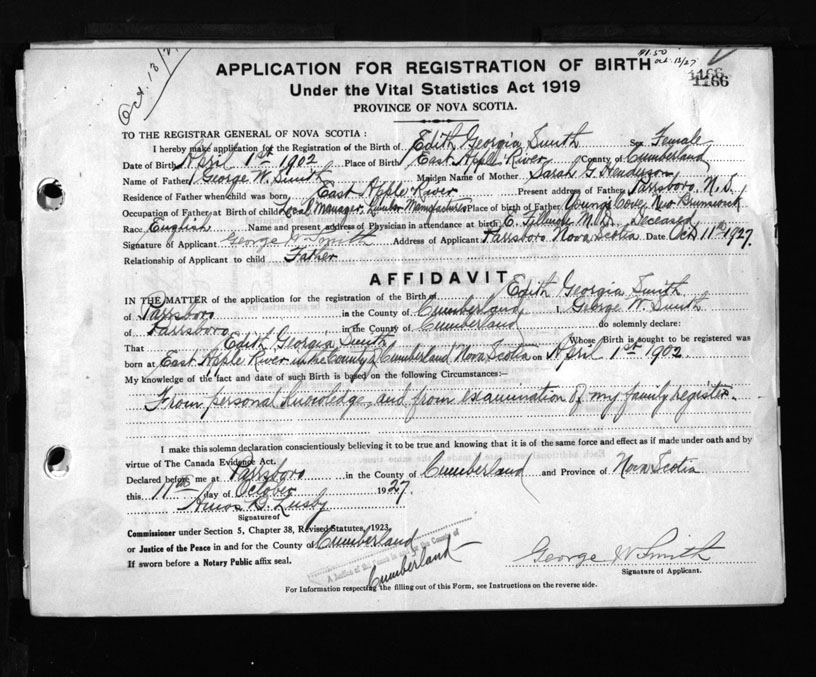 Oct. 13/27
$1.50
Oct. 13/27
1166
1166
APPLICATION FOR REGISTRATION OF BIRTH
Under the Vital Statistics Act 1919
PROVINCE OF NOVA SCOTIA.
TO THE REGISTRAR GENERAL OF NOVA SCOTIA :
I hereby make application for the Registration of the Birth of Edith Georgia Smith Sex Female
Date of Birth April 1st 1902 Place of Birth East Apple River County of Cumberland
Name of Father George W. Smith Maiden Name of Mother Sarah G. Henderson
Residence of Father when child was born East Apple River Present address of Father Parrsboro N.S.
Occupation of Father at Birth of child Local Manager, Lumber Manufacture Place of birth of Father Young's Cove, New Brunswick
Race English Name and present address of Physician in attendance at birth E. Fillmore M.D. Deceased
Signature of Applicant George W Smith Address of Applicant Parrsboro Nova Scotia Date Oct 11th 1927.
Relationship of Applicant to child Father
AFFIDAVIT
IN THE MATTER of the application for the registration of the Birth of Edith Georgia Smith
of Parrsboro in the County of Cumberland I, George W. Smith
of Parrsboro in the County of Cumberland do solemnly declare:
That Edith Georgia Smith Whose Birth is sought to be registered was
born at East Apple River in the County of Cumberland Nova Scotia on April 1st 1902.
My knowledge of the fact and date of such Birth is based on the following Circumstances:-
From personal knowledge, and from examination of my family register.
I make this solemn declaration conscientiously believing it to be true and knowing that it is of the same force and effect as if made under oath and by
virtue of The Canada Evidence Act.
Declared before me at Parrsboro in the County of Cumberland and Province of Nova Scotia
this 11th day of October 1927.
Amos B. Lusby
Signature of
Commissioner under Section 5, Chapter 38, Revised Statutes, 1923,
or Justice of the Peace in and for the County of Cumberland
If sworn before a Notary Public affix seal.
A Justice of the Peace in and for the County of
Cumberland
George W Smith
Signature of Applicant.
For Information respecting the filling out of this Form, see Instructions on the reverse side.